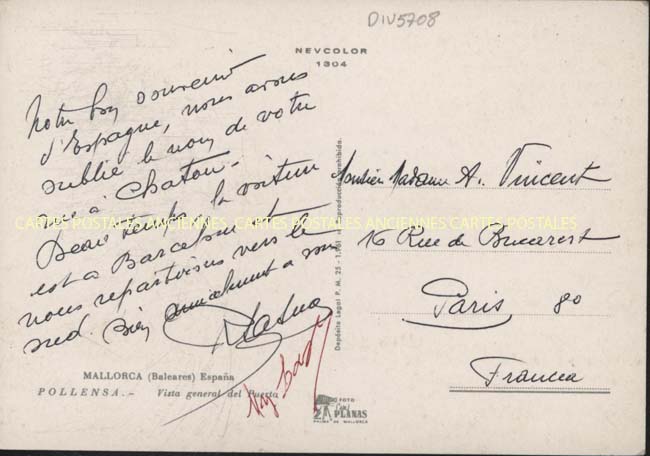 DIV5708
NEVCOLOR
1304
Notre bon souvenir
d'Espagne, nous avons
oublié le nom de votre
rue à Chatou.
Beau temps, la voiture
CARTES POSTALES ANCIENNES, CARTES POSTALES ANCIENNES CARTES POSTALES
est à Barcelone et
nous repartirons vers le
sud. Bien amicalement à vous
MALLORCA (Baleares) España
POLLENSA.- Vista general del Puerto
Depósito Legal P. M. 25 - 1.961
producción prohibida.
Monsieur Madame A. Vincent
16 Rue de Bucarest
Paris 80
Francia
FOTO
PLANAS
PALMA DE MALLORCA